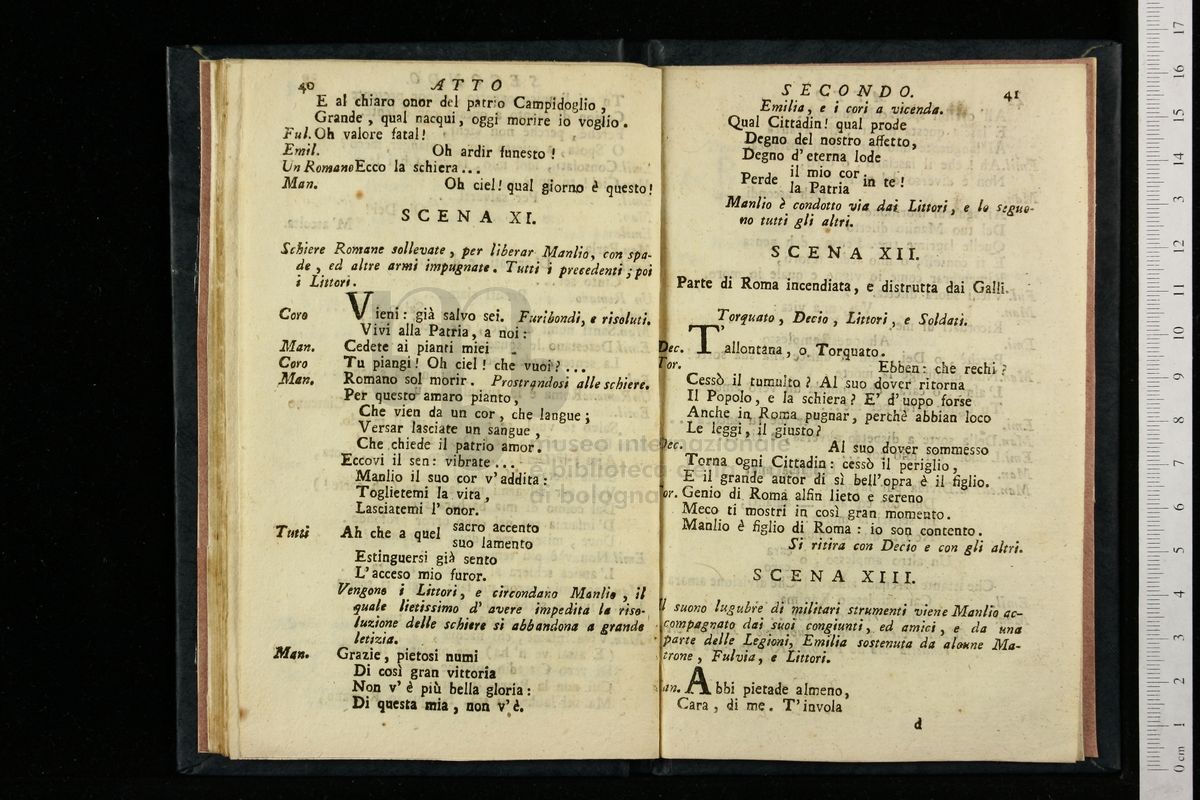 40 ATTO
E al chiaro onor del patrio Campidoglio,
Grande, qual nacqui, oggi morire io voglio.
Ful. Oh valore fatal!
Emil. Oh ardir funesto!
Un Romano Ecco la schiera...
Man. Oh ciel! qual giorno è questo!
SCENA XI.
Schiere Romane sollevate, per liberar Manlio, con spa-
de, ed altre armi impugnate. Tutti i precedenti; poi
i Littori.
Coro Vieni: già salvo sei. Furibondi, e risoluti.
Vivi alla Patria, a noi:
Man. Cedete ai pianti miei
Coro Tu piangi! Oh ciel! che vuoi?...
Man. Romano sol morir. Prostrandosi alle schiere.
Per questo amaro pianto,
Che vien da un cor, che langue;
Versar lasciate un sangue,
Che chiede il patrio amor.
Eccovi il sen: vibrate....
Manlio il suo cor v'addita:
Toglietemi la vita,
Lasciatemi l'onor.
Tutti Ah che a quel sacro accento
suo lamento
Estinguersi già sento
L'acceso mio furor.
Vengono i Littori, e circondano Manlio, il
quale lietissimo d'avere impedita la riso-
luzione delle schiere si abbandona a grande
letizia.
Man. Grazie, pietosi numi
Di così gran vittoria
Non v'è più bella gloria:
Di questa mia, non v'è.
SECONDO. 41
Emilia, e i cori a vicenda.
Qual Cittadin! qual prode
Degno del nostro affetto,
Degno d'eterna lode
Perde il mio cor in te!
la Patria
Manlio è condotto via dai Littori, e lo seguo-
no tutti gli altri.
SCENA XII.
Parte di Roma incendiata, e distrutta dai Galli.
Torquato, Decio, Littori, e Soldati.
Dec. T'allontana, o Torquato.
Tor. Ebben: che rechi?
Cessò il tumulto? Al suo dover ritorna
Il Popolo, e la schiera? E' d'uopo forse
Anche in Roma pugnar, perchè abbian loco
Le leggi, il giusto?
Dec. Al suo dover sommesso
Torna ogni Cittadin: cessò il periglio,
E il grande autor di sì bell'opra è il figlio.
Tor. Genio di Roma alfin lieto e sereno
Meco ti mostri in così gran momento.
Manlio è figlio di Roma: io son contento.
Si ritira con Decio e con gli altri.
SCENA XIII.
Il suono lugubre di militari strumenti viene Manlio ac-
compagnato dai suoi congiunti, ed amici, e da una
parte delle Legioni, Emilia sostenuta da alcune Ma-
trone, Fulvia, e Littori.
Man. Abbi pietade almeno,
Cara, di me. T'invola
d
museo internazionale
e biblioteca della
di bologna
0 cm 1 2 3 4 5 6 7 8 9 10 11 12 13 14 15 16 17